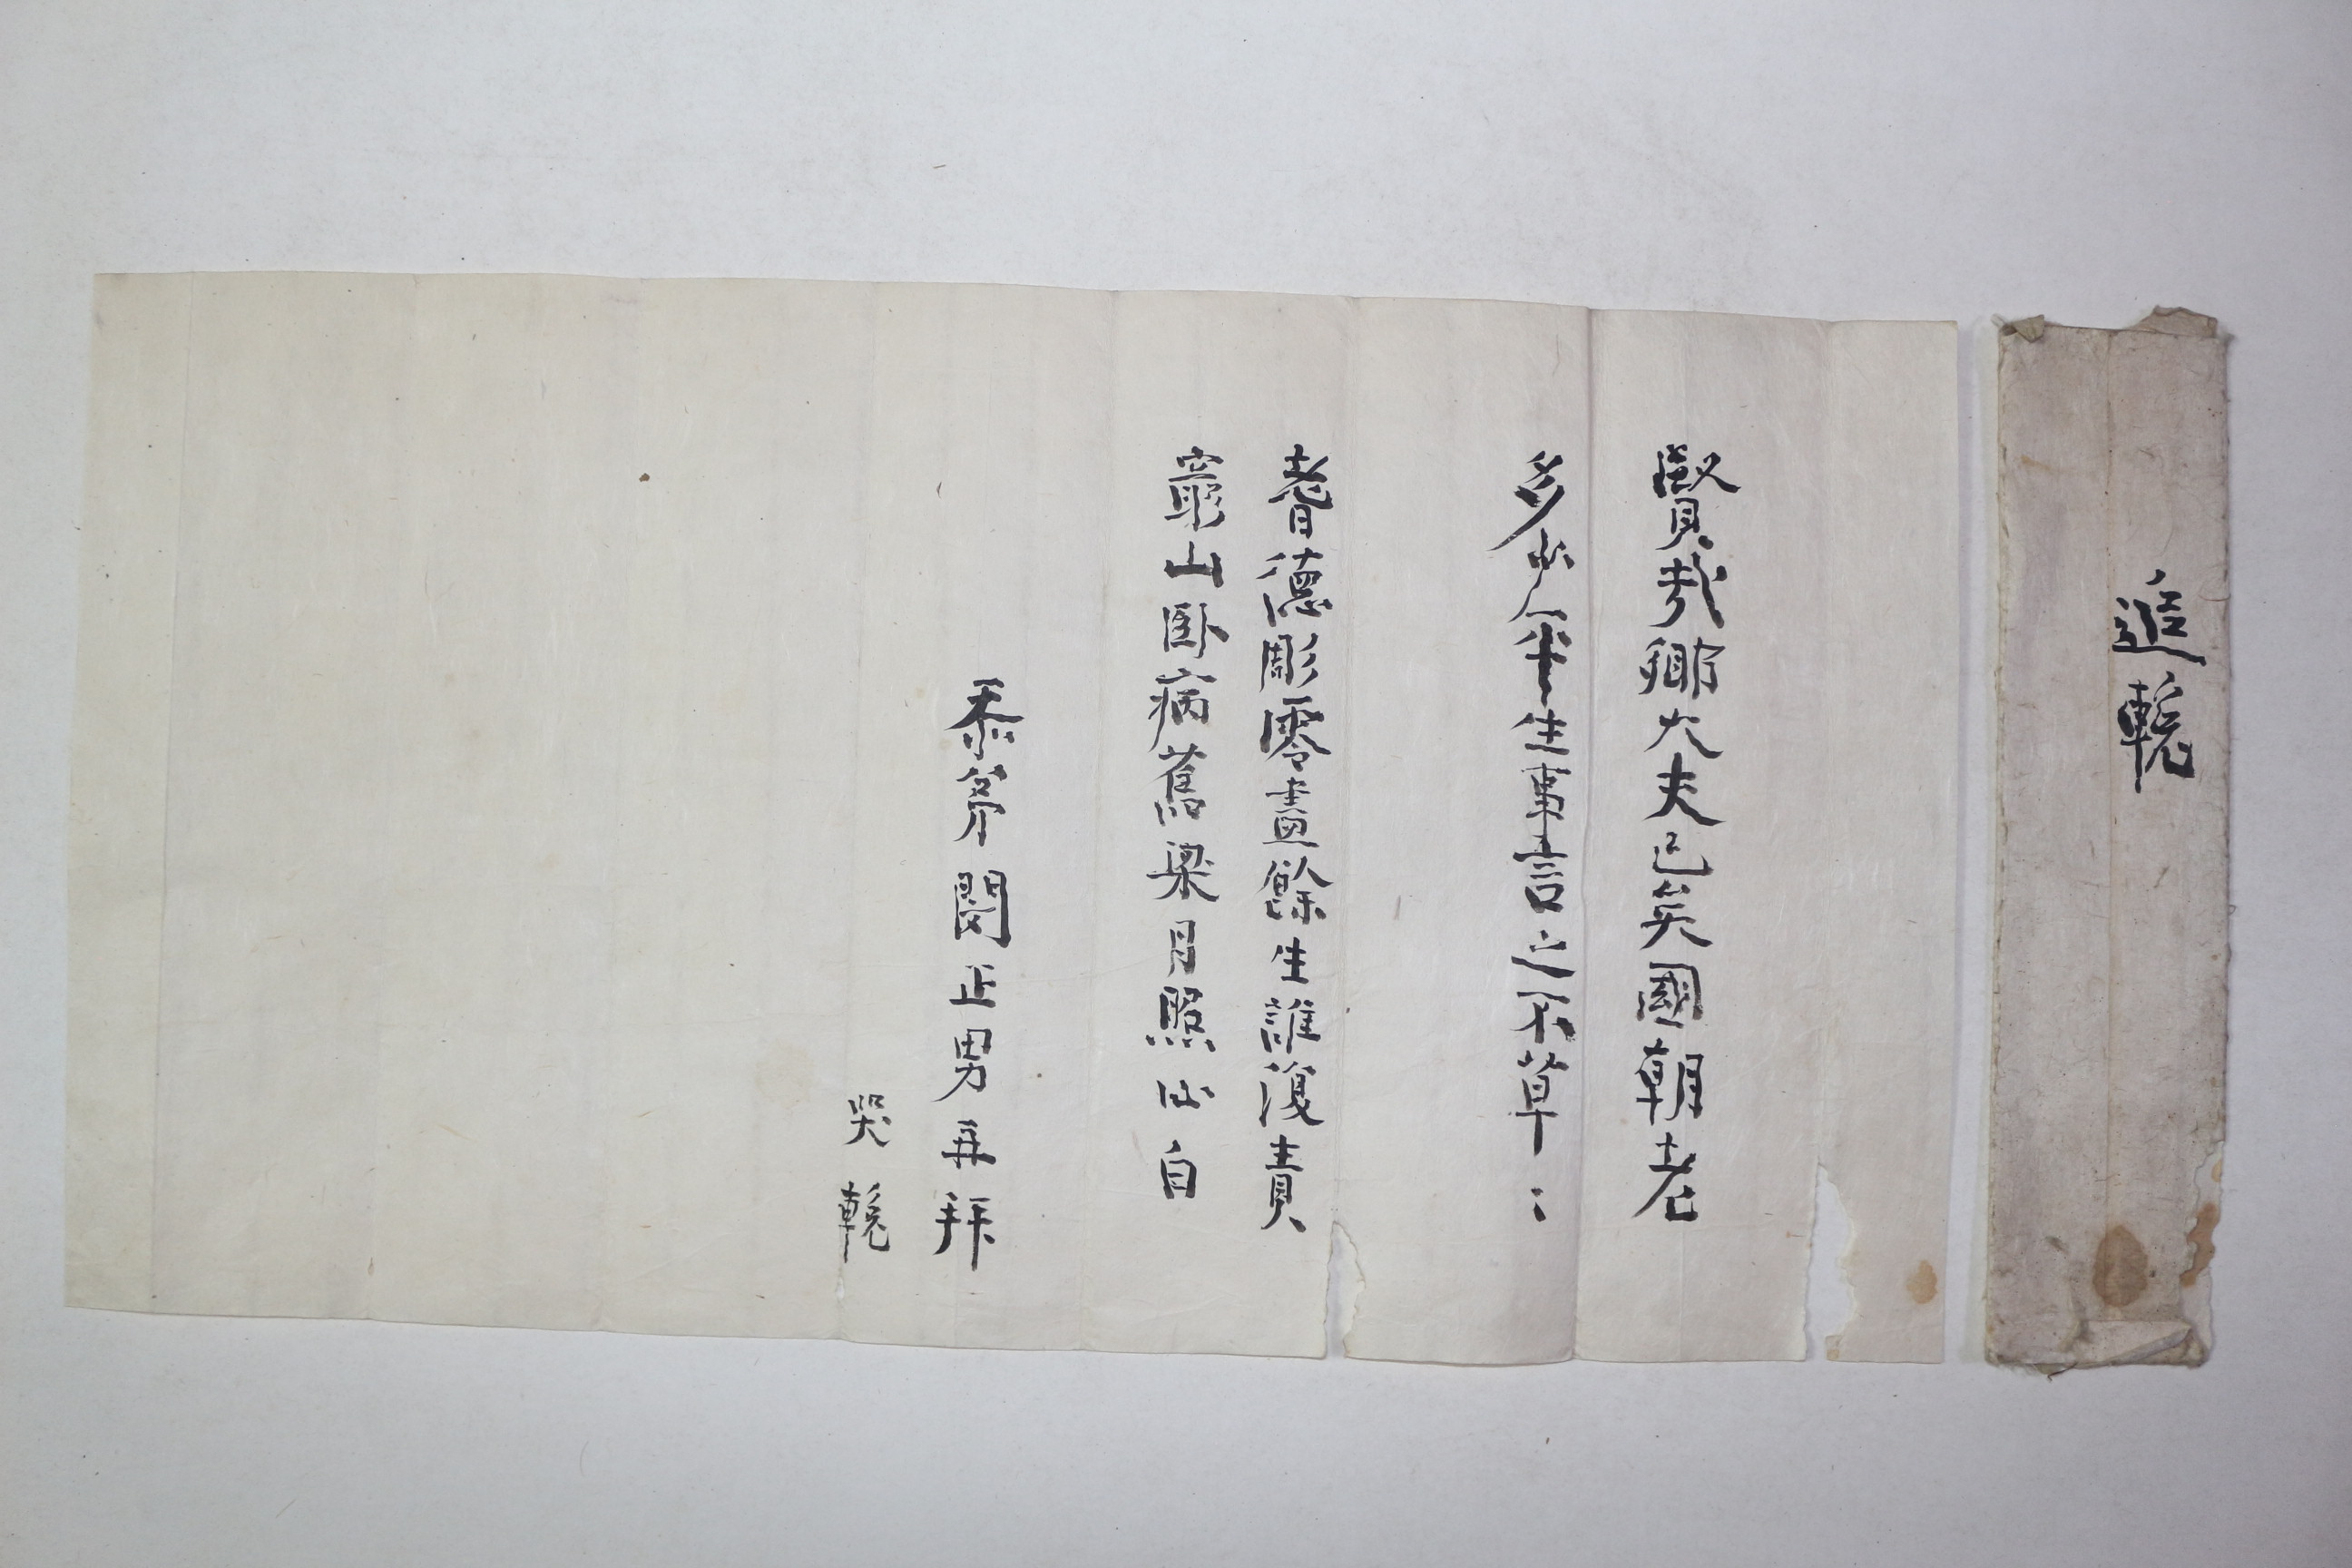 追輓
賢哉鄉大夫已矣國朝老
多少平生事言之不草〻
耆德彫零盡餘生誰復責
竆山臥病舊梁月照心白
忝第閔正男再拜
哭輓